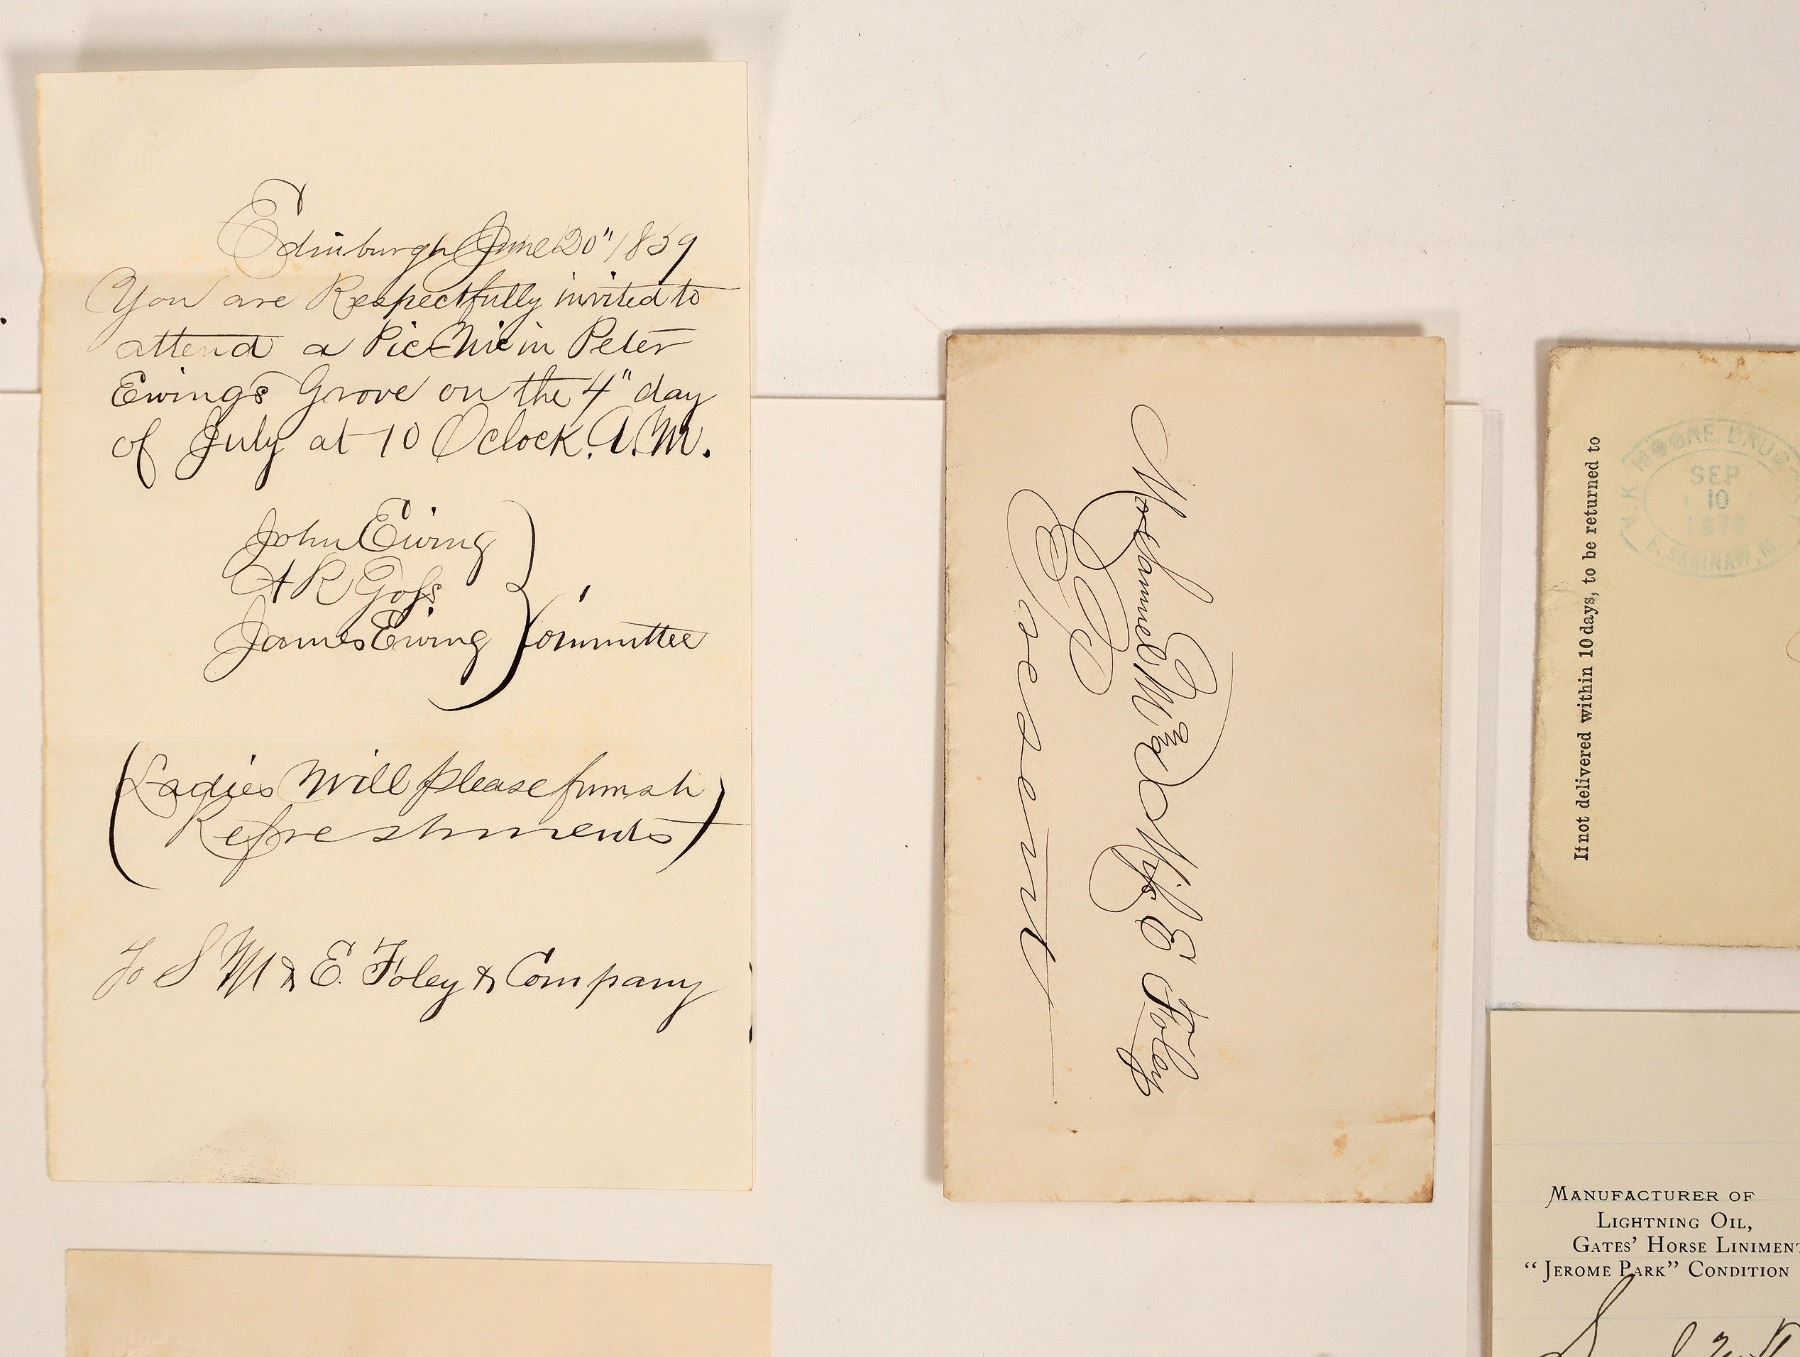 Edinburgh June 20" 1859
You are Respectfully invited to
attend a Pic Nic in Peter
Ewing's Grove on the 4" day
of July at 10 Oclock. A.M.
John Ewing
A R Goss
James Ewing
Committee
(Ladies Will please furnish
Refreshments)
To S M & E. Foley & Company
E. Foley
If not delivered within 10 days, to be returned to
MOORE DRUG
SEP
10
E. SAGINAW, M
MANUFACTURER OF
LIGHTNING OIL,
GATES' HORSE LINIMENT
"JEROME PARK" CONDITION